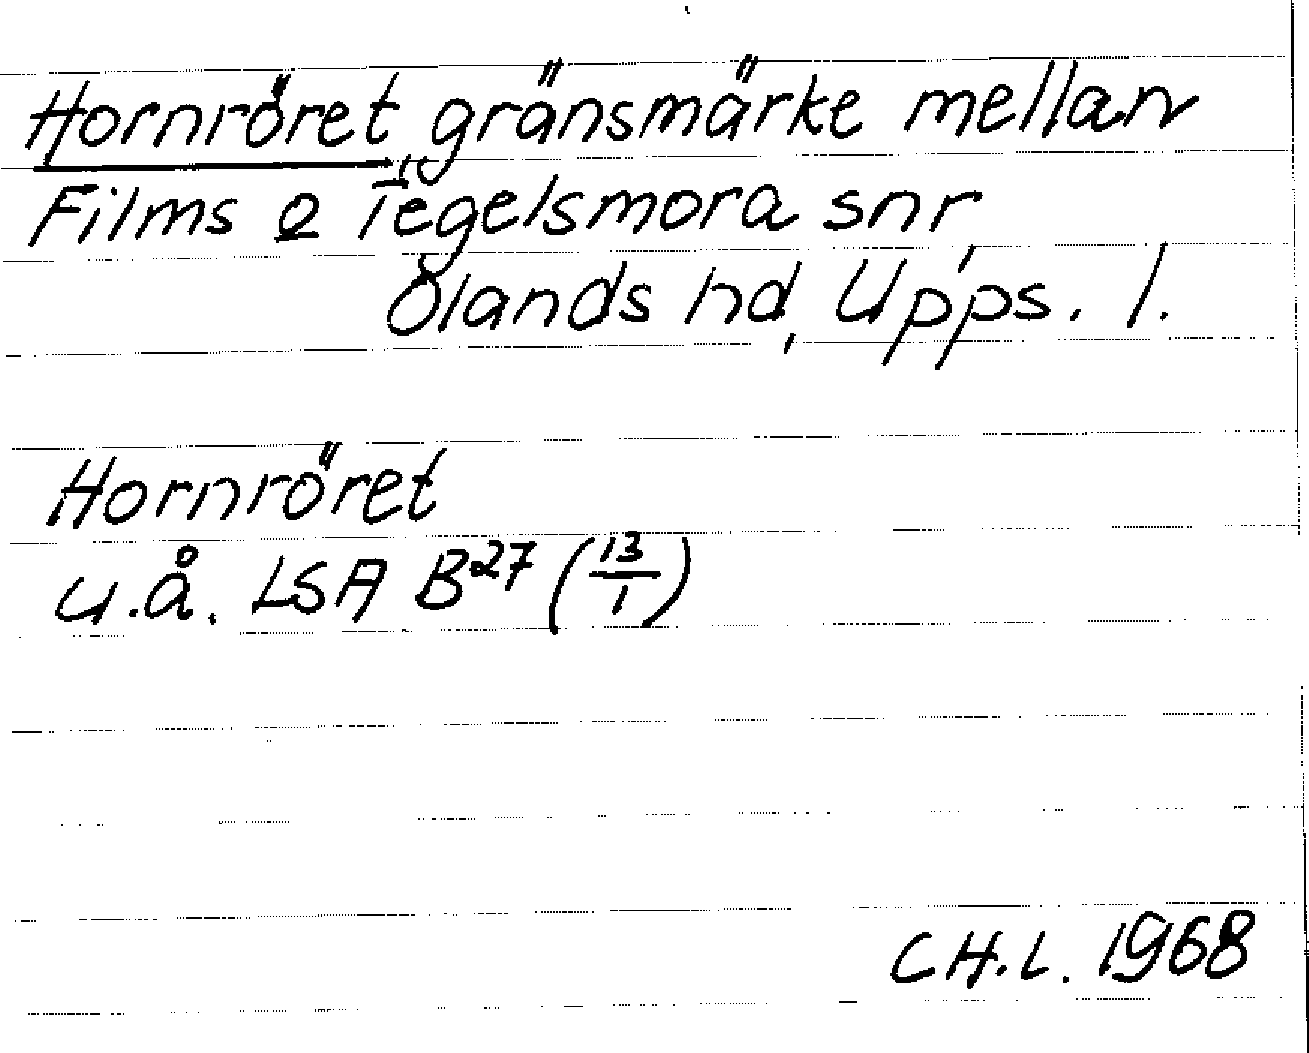 Hornröret, gränsmärke mellan
Films o Tegelsmora snr,
Ölands hd, Upps. l.
Hornröret
u.å. LSA B27 (13/1)
CH.L. 1968